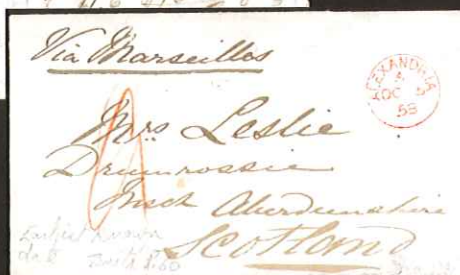 Via Marseilles
ALEXANDRIA
A
OC
58
Mrs Leslie
Drumrossie
Insch Aberdeenshire
Scotland
Earliest known
date